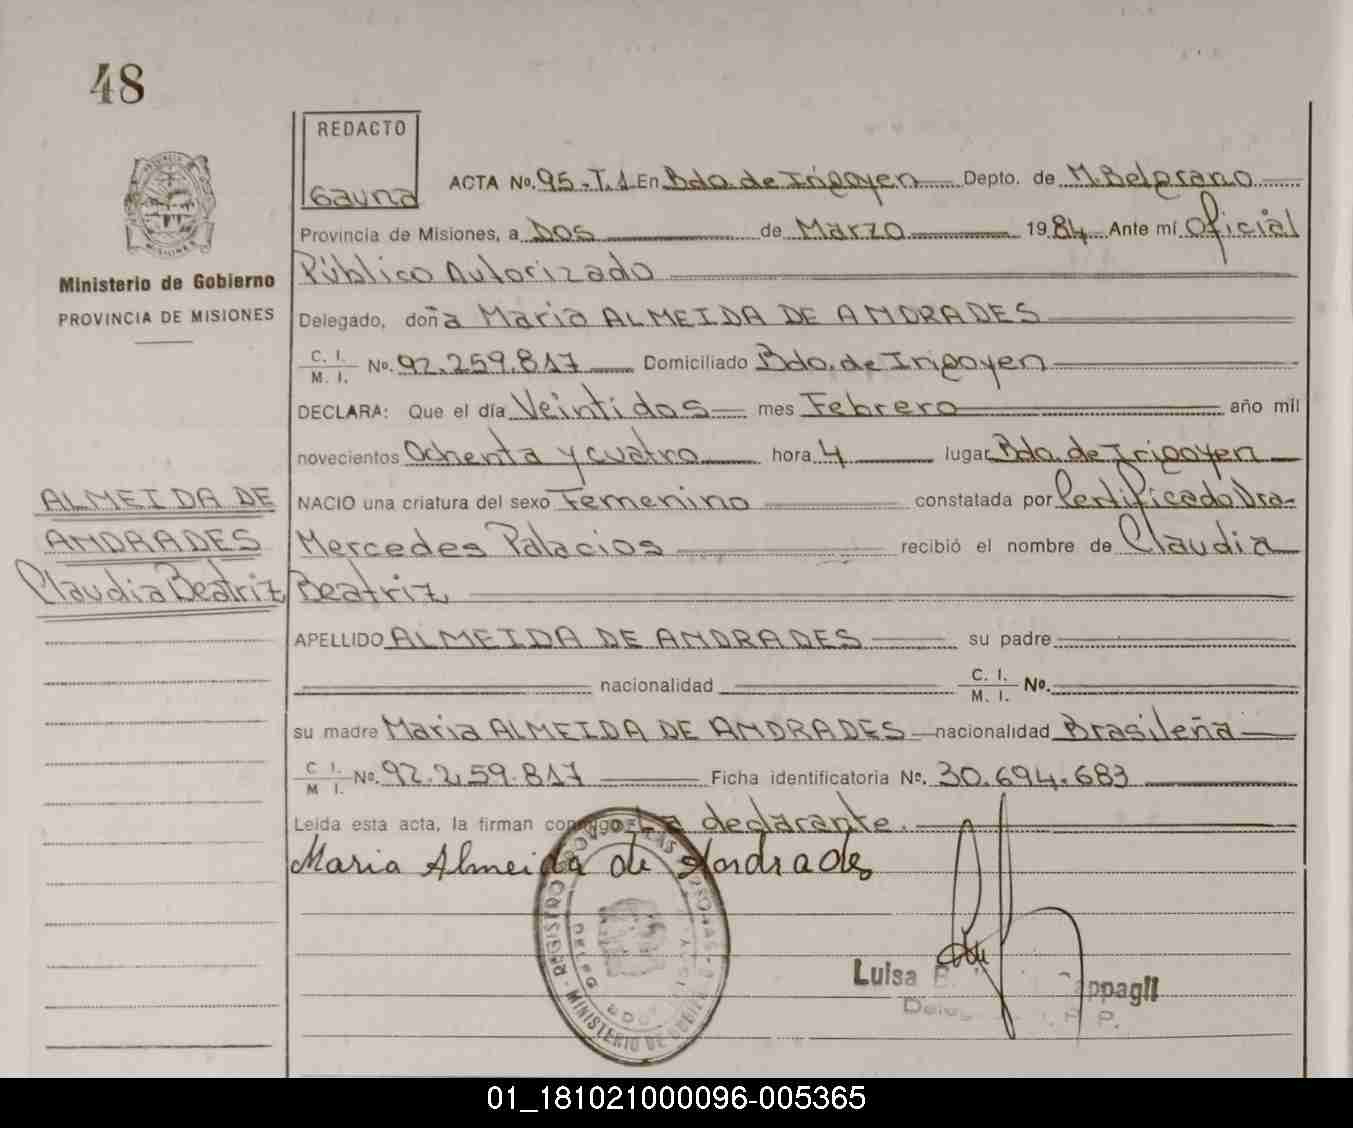 48
REDACTO
Gauna
ACTA No. 95-T.1 En Bdo. de Irigoyen Depto. de M. Belgrano
Provincia de Misiones, a Dos de Marzo 1984 Ante mí Oficial
Público Autorizado
Ministerio de Gobierno
PROVINCIA DE MISIONES
Delegado, doña Maria ALMEIDA DE ANDRADES
C. I.
M. I. No. 92.259.817 Domiciliado Bdo. de Irigoyen
DECLARA: Que el día Veintidos mes Febrero año mil
novecientos Ochenta y cuatro hora 4 lugar Bdo. de Irigoyen
NACIO una criatura del sexo Femenino constatada por Certificado Dra-
Mercedes Palacios recibió el nombre de Claudia
Beatriz
ALMEIDA DE
ANDRADES
Claudia Beatriz
APELLIDO ALMEIDA DE ANDRADES su padre
nacionalidad C. I.
M. I. No.
su madre Maria ALMEIDA DE ANDRADES nacionalidad Brasileña
C I.
M I. No. 92.259.817 Ficha identificatoria No. 30.694.683
Leida esta acta, la firman conmigo La declarante.
Maria Almeida de Andrades
REGISTRO PROV. DE LAS PERSONAS
MINISTERIO DE GOBIERNO
Luisa
01_181021000096-005365